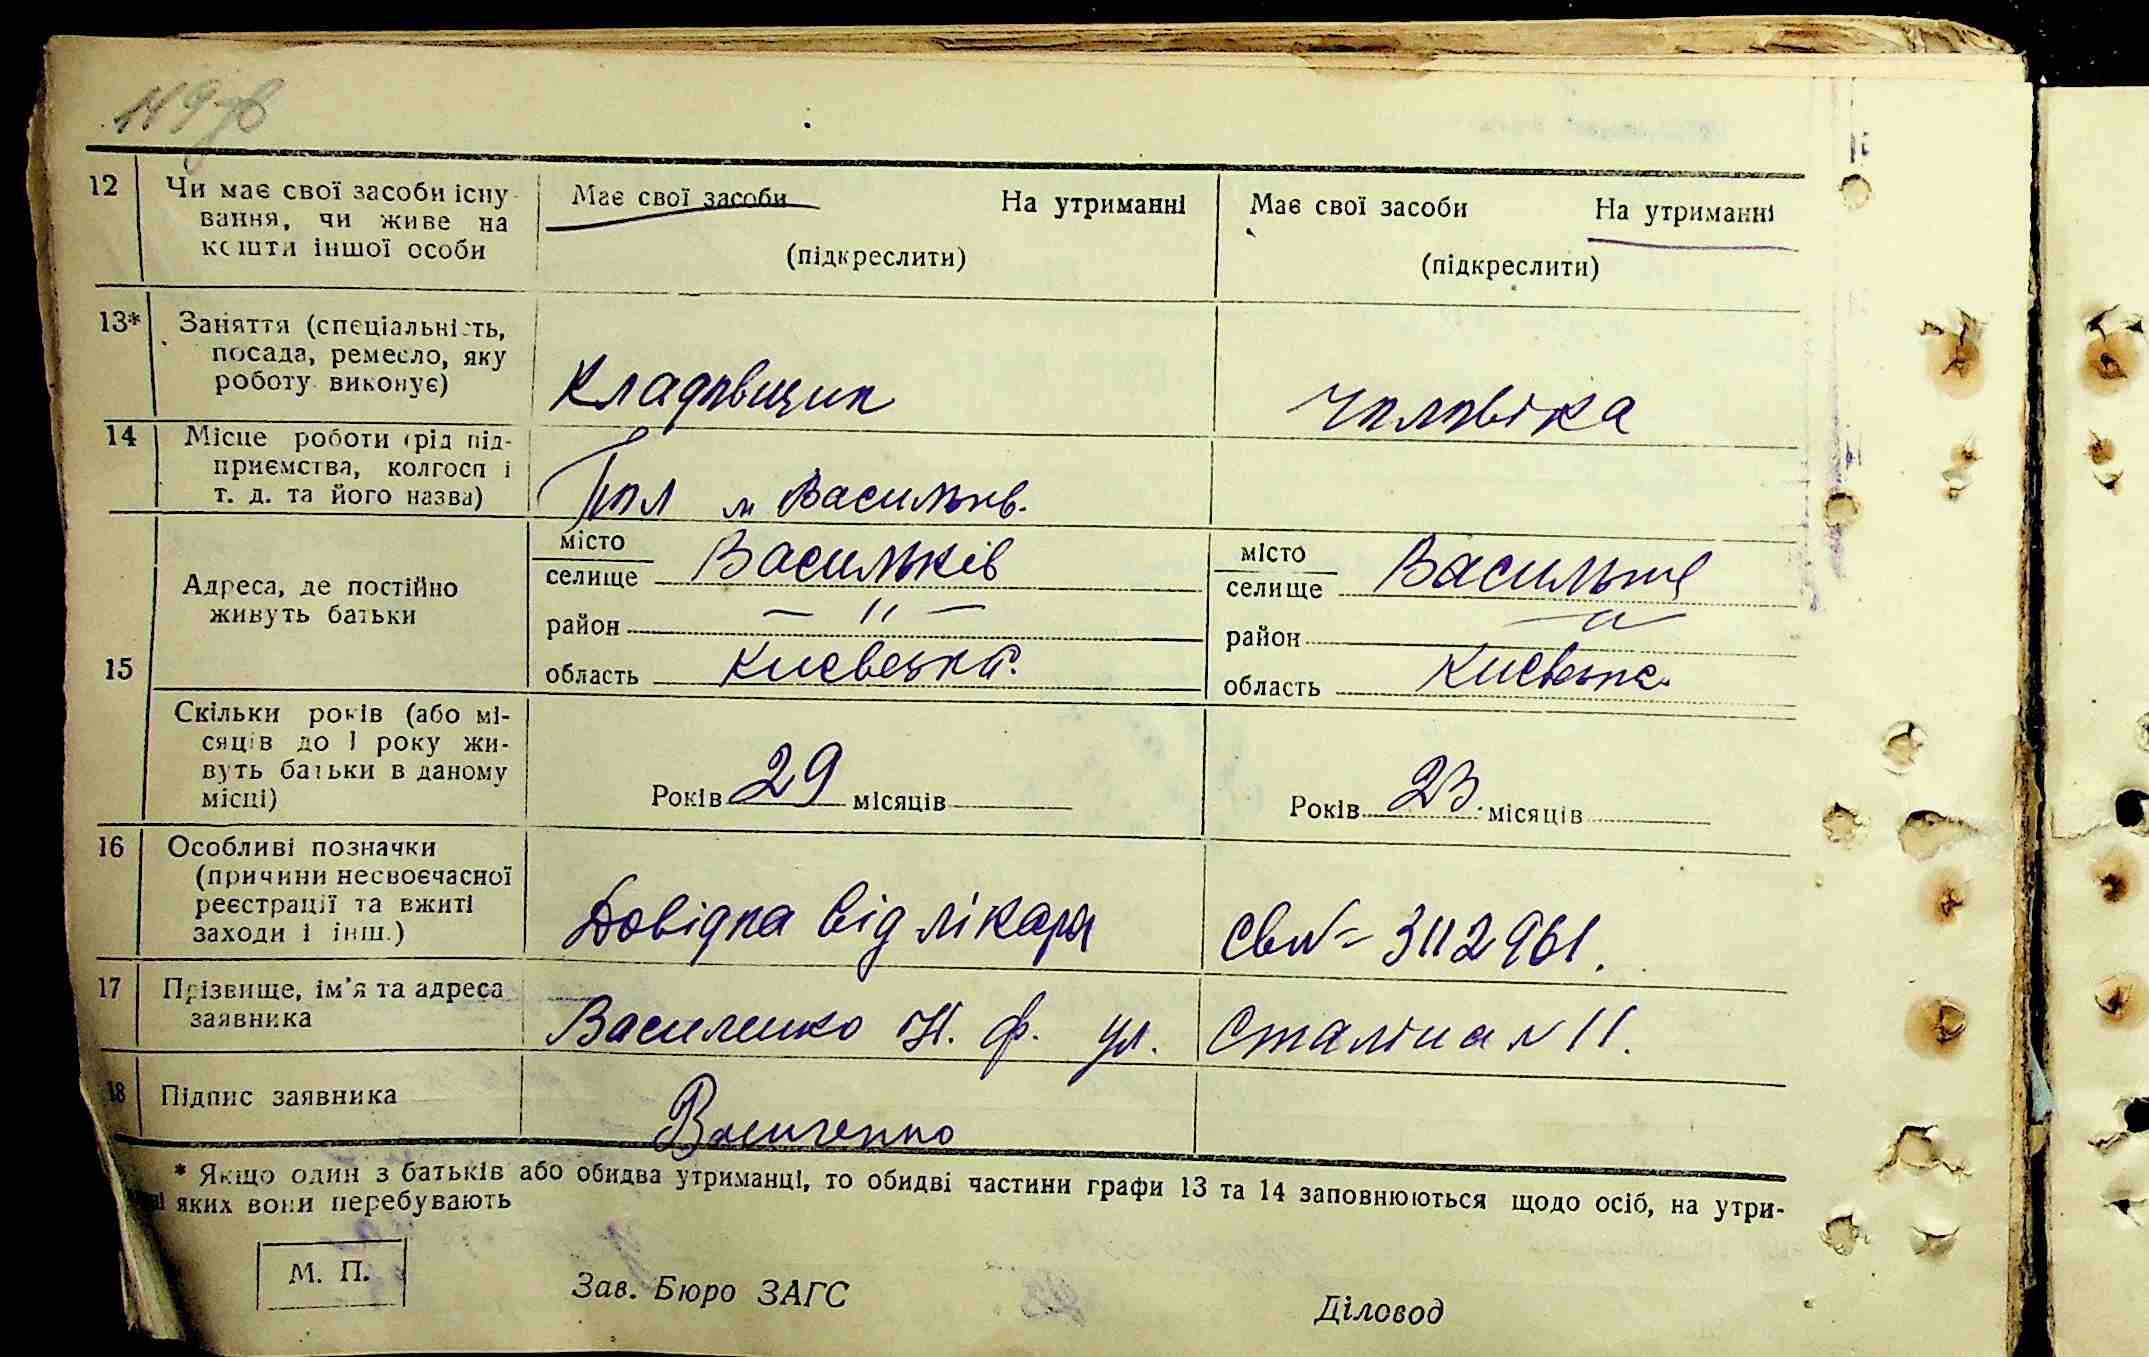 149 зв
12 Чи має свої засоби існу-
вання, чи живе на
кошти іншої особи
Має свої засоби На утриманні
(підкреслити)
Має свої засоби На утриманні
(підкреслити)
13* Заняття (спеціальність,
посада, ремесло, яку
роботу виконує)
Кладовщик
чоловіка
14 Місце роботи (рід під-
приємства, колгосп і
т. д. та його назва)
м Васильків.
15 Адреса, де постійно
живуть батьки
місто
селище Васильків
район — " —
область Києвська.
місто
селище Васильків
район — " —
область Києвська.
Скільки років (або мі-
сяців до 1 року жи-
вуть батьки в даному
місці)
Років 29 місяців
Років 23. місяців
16 Особливі позначки
(причини несвоєчасної
реєстрації та вжиті
заходи і інш.)
Довідка від лікаря
Св № 3112961.
17 Прізвище, ім'я та адреса
заявника
Василенко Н. Ф. ул. Сталіна N 11.
18 Підпис заявника
Василенко
* Якщо один з батьків або обидва утриманці, то обидві частини графи 13 та 14 заповнюються щодо осіб, на утри-
яких вони перебувають
М. П.
Зав. Бюро ЗАГС
Діловод